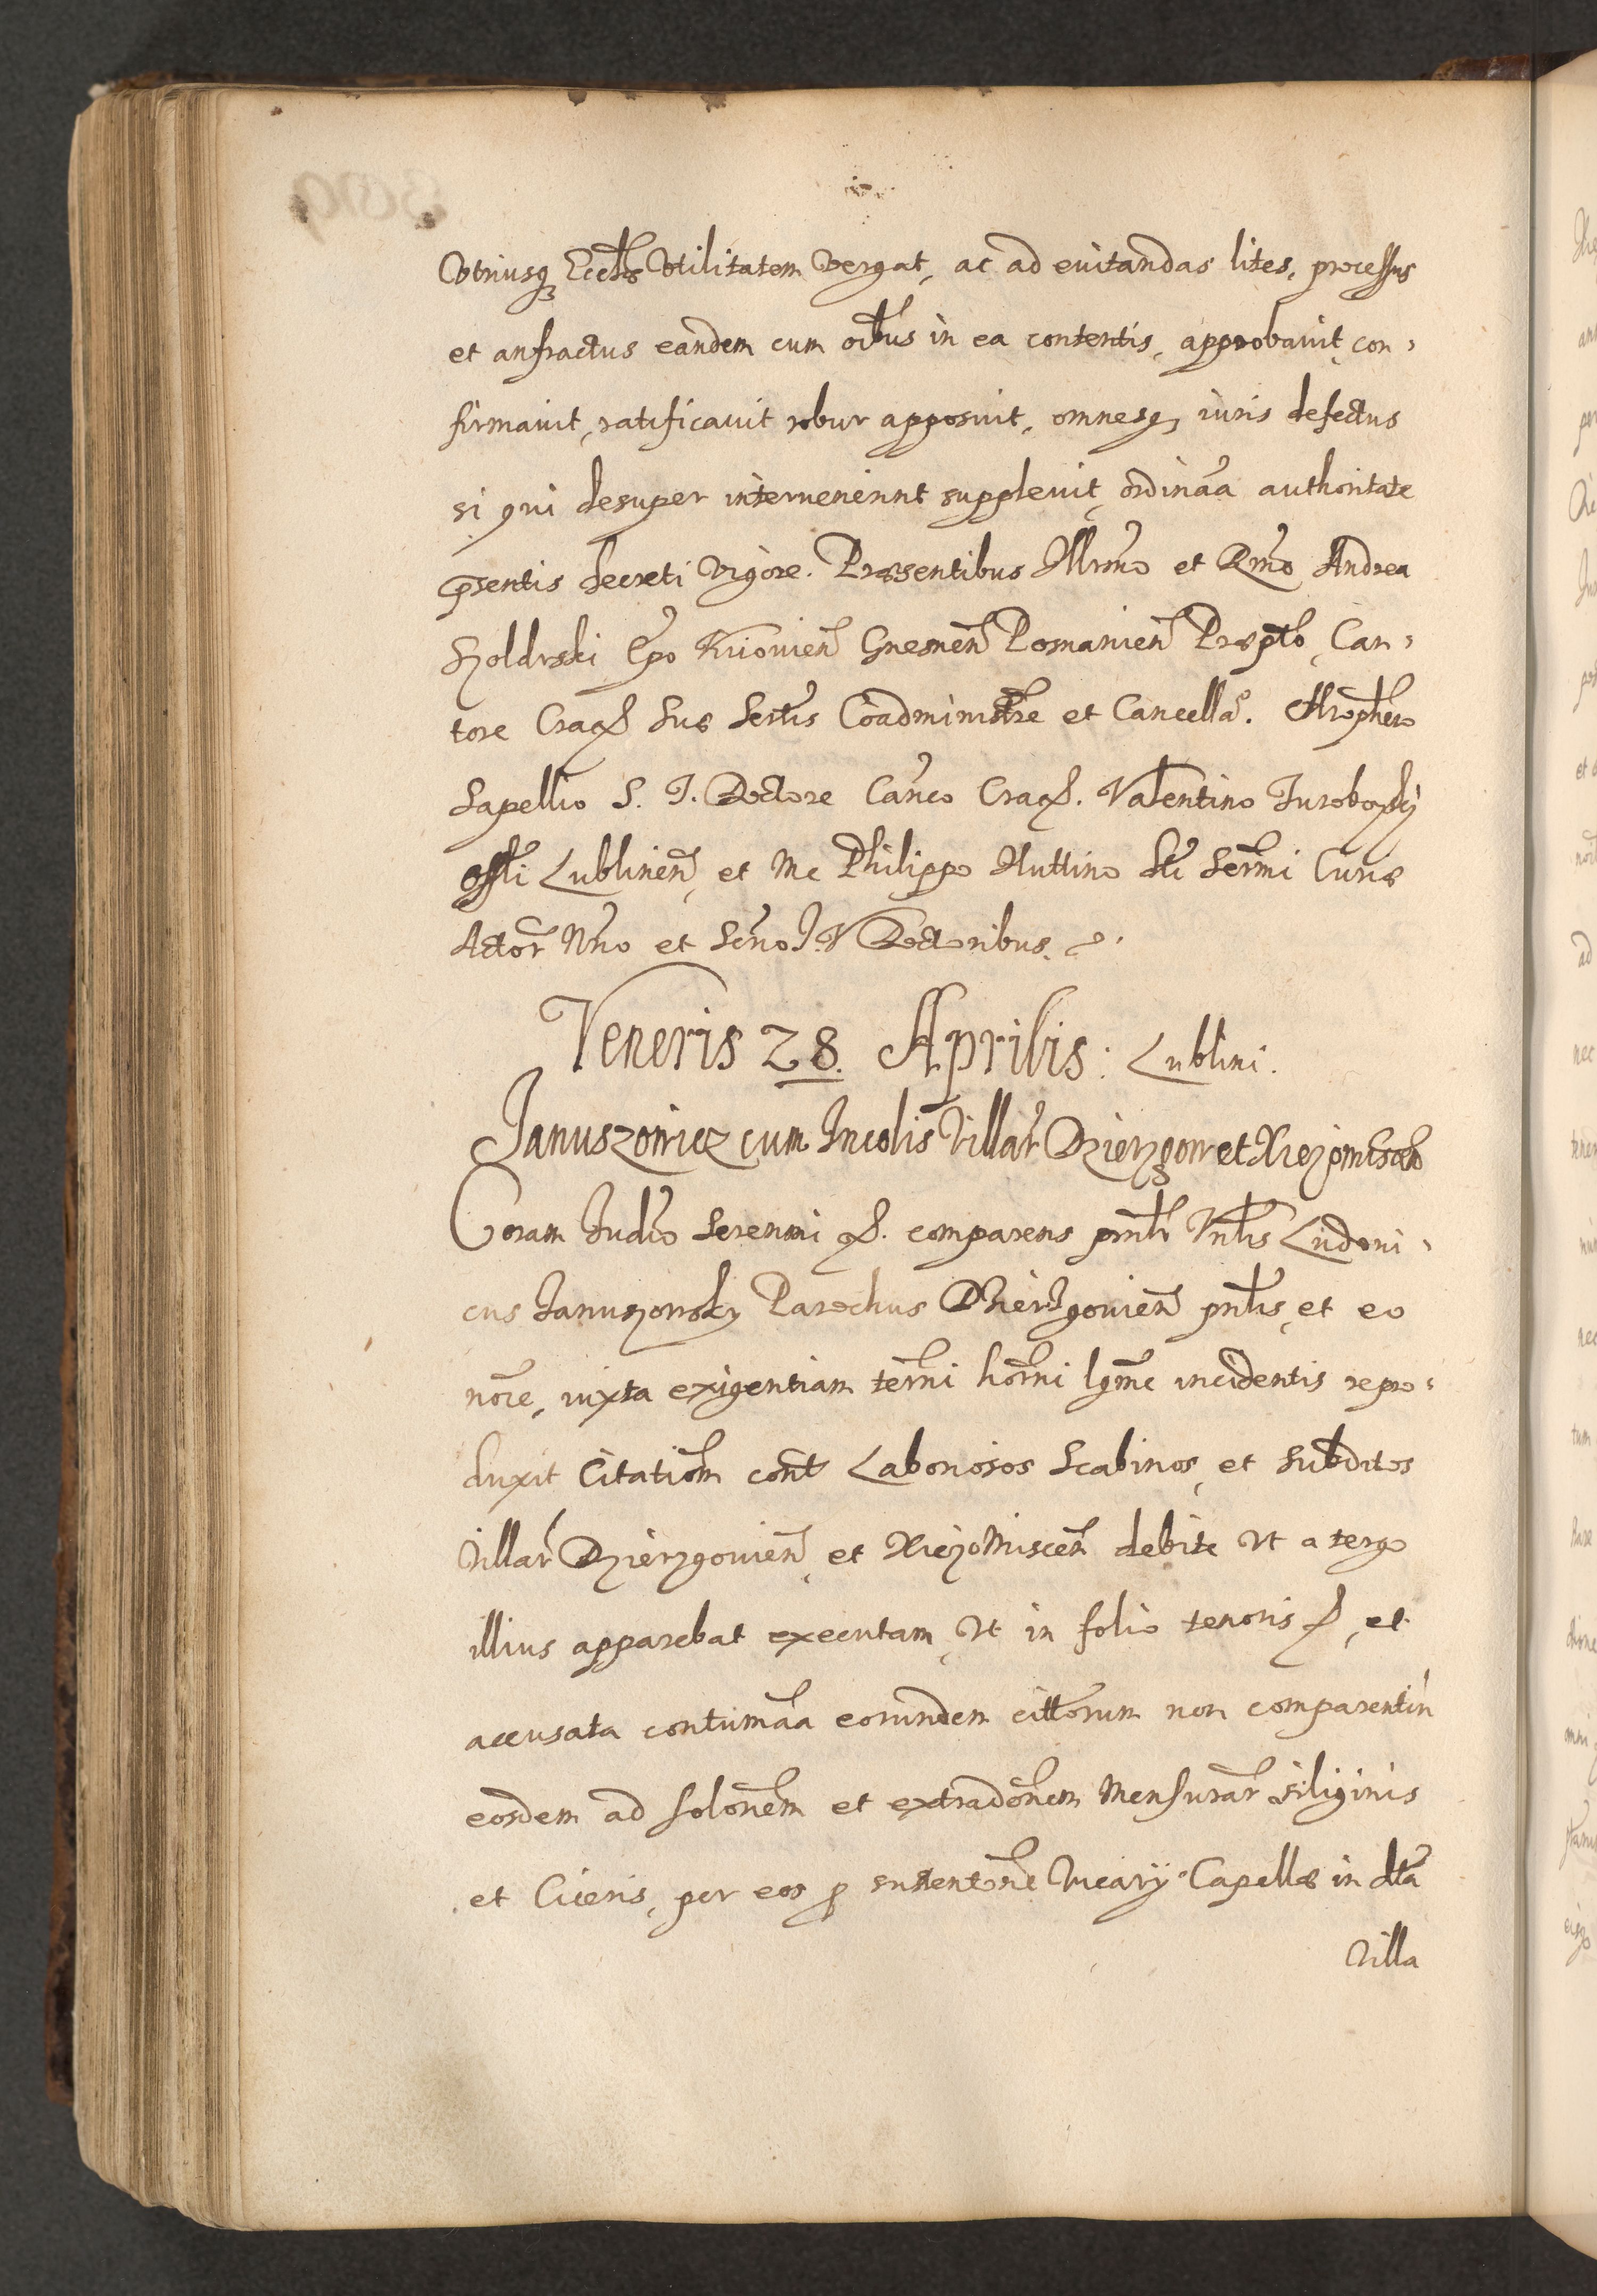 Vtriusq Eccliæ Vtilitatem Vergat, ac ad euitandas lites, processus
et anfractus eandem cum oibus in ea contentis, approbauit, con-
firmauit, ratificauit robur apposuit, omnesq iuris defectus
si qui desuper interuenerint suppleuit, ordinaa authoritate
pñsentis decreti vigore. Præsentibus Illrmo et Rmo Andrea
Szoldrski Epo Kiiouien Gnesnen Posnanien Præpto, Can-
tore Crac. Suæ Sertis Coadministre et Cancella.
Sapellio S. T. Doctore Canco Crac. Valentino Turoboysky
offli Lublinen, et Me Philippo Huttino Ste Sermi Curiæ
Actor Nrio et Scrio I. V Doctoribus.
Veneris 28. Aprilis: Lublini.
Januszowicz cum Incolis Villar Dzierzgow et
Coram Judio Serenmi &. comparens prnlr Vnlis Ludoui-
cus Januszowsky Parochus Dzierzgouien prnlis, et eo
noie, iuxta exigentiam termi horni lgme incidentis repro-
duxit Citationem cont Laboriosos Scabinos, et subditos
Villar Dzierzgouien, et Xiezomiscen debite vt a tergo
illius apparebat executam, vt in folio tenoris &, et
accusata contumaa eorundem cittorum non comparentiu
eosdem ad solonem et extradonem Mensurar siliginis
et Ciceris, per eos p sustentone Vicarij Capellæ in dta
Villa